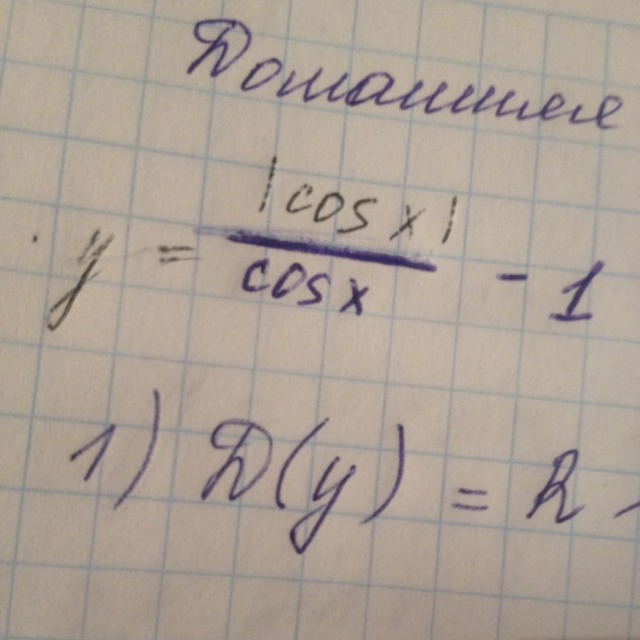 Домашнее
y = |cos x| / cos x - 1
1) D(y) = R -